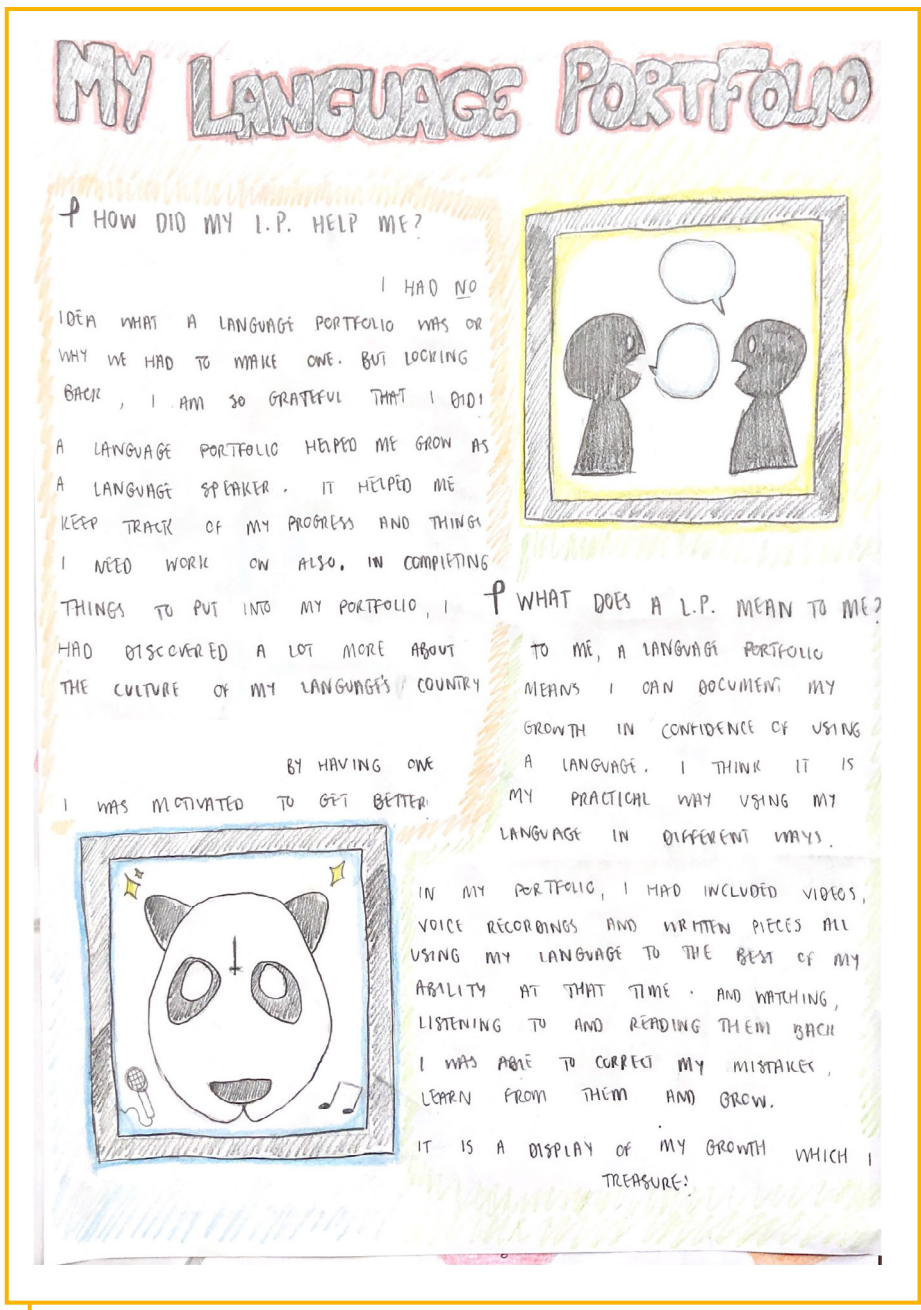 MY LANGUAGE PORTFOLIO
HOW DID MY L.P. HELP ME?
I HAD NO
IDEA WHAT A LANGUAGE PORTFOLIO WAS OR
WHY WE HAD TO MAKE ONE. BUT LOOKING
BACK, I AM SO GRATEFUL THAT I DID!
A LANGUAGE PORTFOLIO HELPED ME GROW AS
A LANGUAGE SPEAKER. IT HELPED ME
KEEP TRACK OF MY PROGRESS AND THINGS
I NEED WORK ON ALSO. IN COMPLETING
THINGS TO PUT INTO MY PORTFOLIO, I
HAD DISCOVERED A LOT MORE ABOUT
THE CULTURE OF MY LANGUAGE'S COUNTRY
BY HAVING ONE
I WAS MOTIVATED TO GET BETTER!
WHAT DOES A L.P. MEAN TO ME?
TO ME, A LANGUAGE PORTFOLIO
MEANS I CAN DOCUMENT MY
GROWTH IN CONFIDENCE OF USING
A LANGUAGE. I THINK IT IS
MY PRACTICAL WAY USING MY
LANGUAGE IN DIFFERENT WAYS.
IN MY PORTFOLIO, I HAD INCLUDED VIDEOS,
VOICE RECORDINGS AND WRITTEN PIECES ALL
USING MY LANGUAGE TO THE BEST OF MY
ABILITY AT THAT TIME. AND WATCHING,
LISTENING TO AND READING THEM BACK
I WAS ABLE TO CORRECT MY MISTAKES,
LEARN FROM THEM AND GROW.
IT IS A DISPLAY OF MY GROWTH WHICH I
TREASURE!